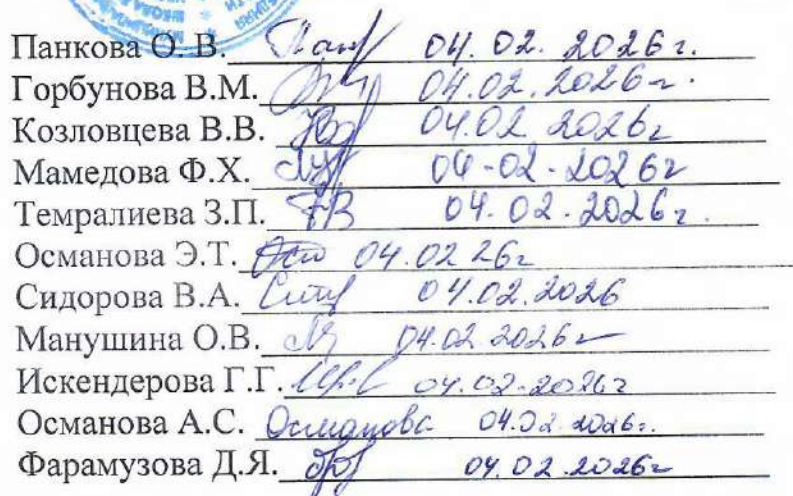 Панкова О. В. 04. 02. 2026 г.
Горбунова В.М. 04.02.2026 г.
Козловцева В.В. 04.02 2026г
Мамедова Ф.Х. 04-02-2026г
Темралиева З.П. 04.02.2026г.
Османова Э.Т. 04.02 26г
Сидорова В.А. 04.02.2026
Манушина О.В. 04.02.2026г
Искендерова Г.Г. 04.02.2026г
Османова А.С. Османова 04.02.2026г.
Фарамузова Д.Я. 04.02.2026г